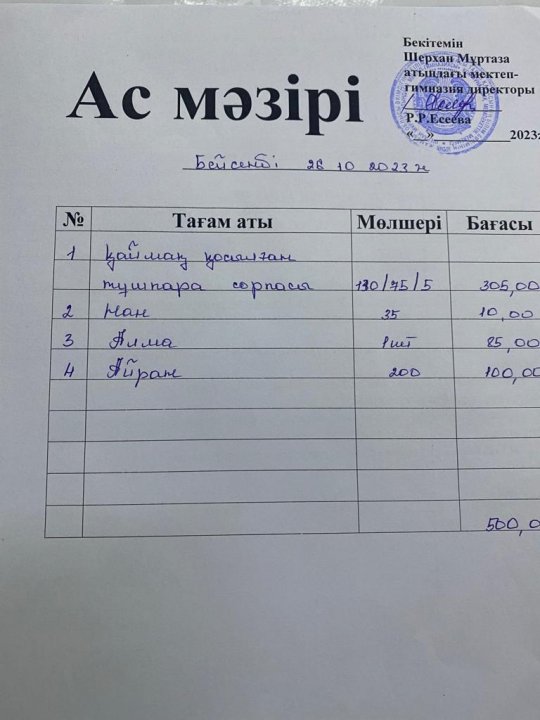 Бекітемін
Шерхан Мұртаза
атындағы мектеп-
гимназия директоры
Р.Р.Есеева
«__»__________2023ж
Ас мәзірі
Бейсенбі 26 10 2023 ж
№ Тағам аты Мөлшері Бағасы
1 Қаймақ қосылған
тұшпара сорпасы 130/75/5 305,00
2 Нан 35 10,00
3 Алма 1 шт 85,00
4 Айран 200 100,00
500,0